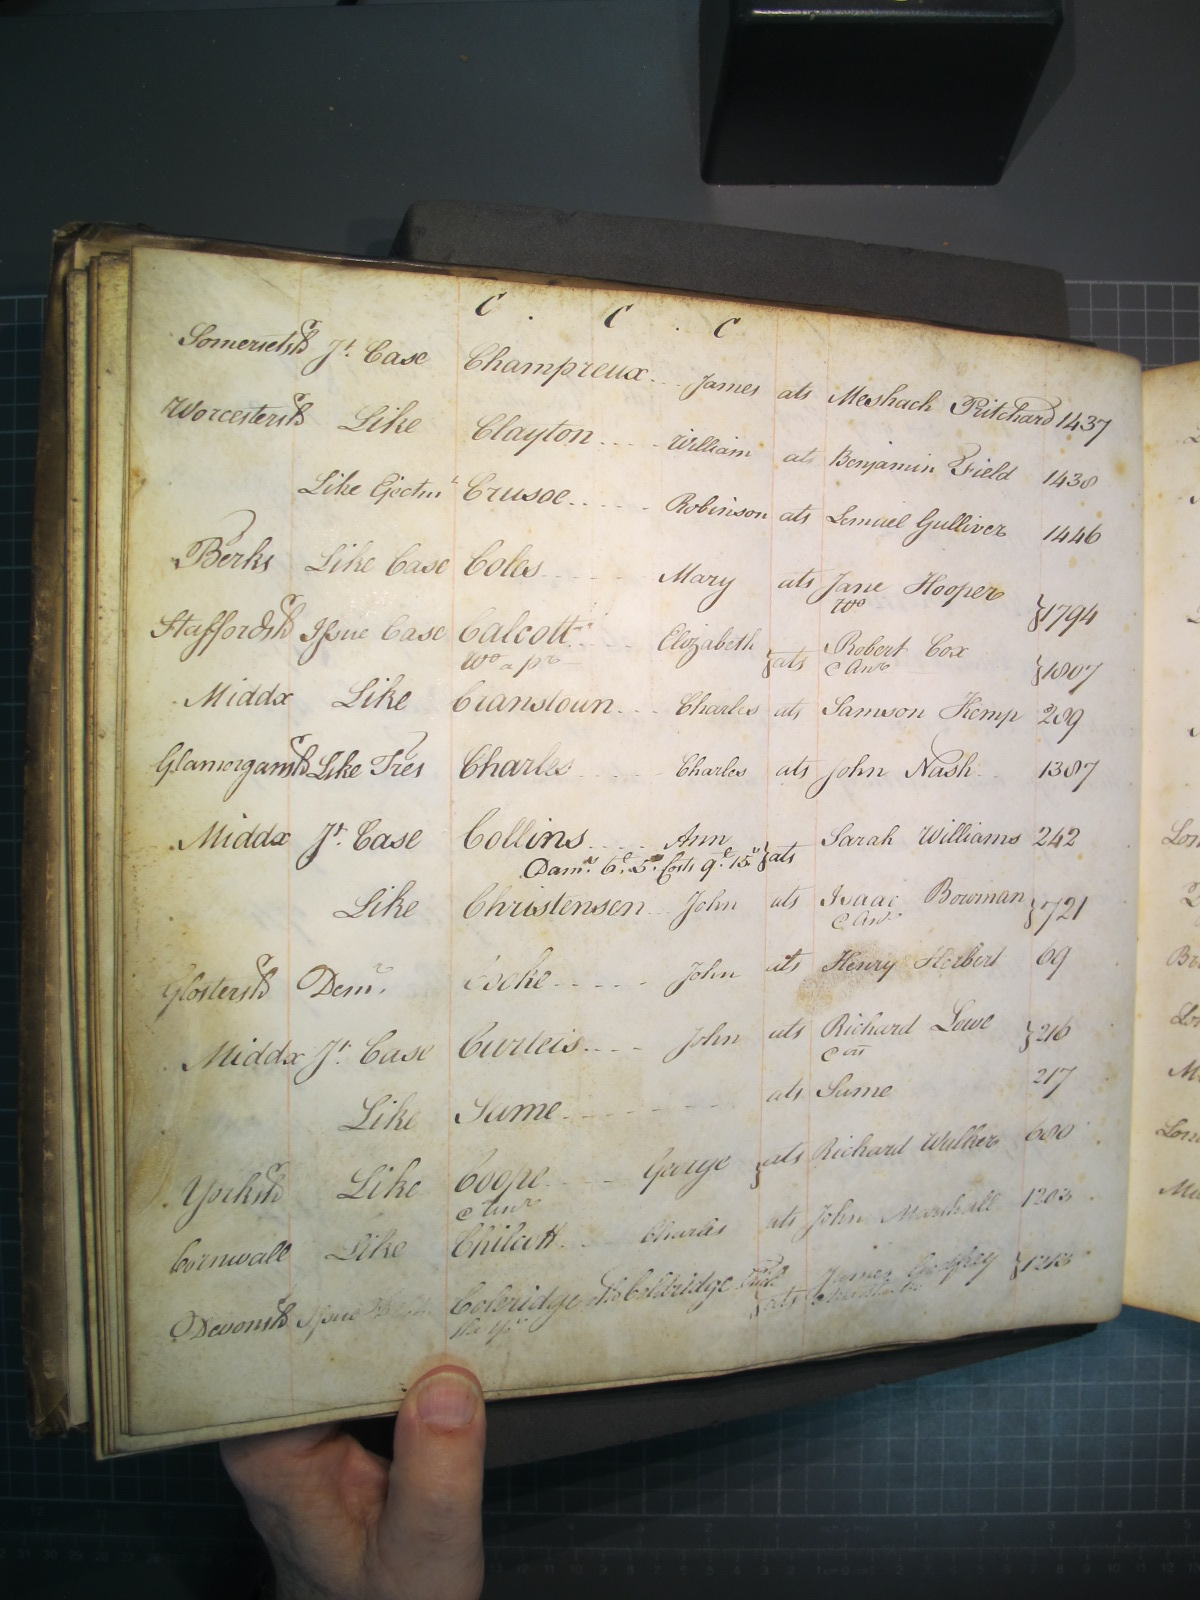 C . C . C
Somersetsh Jt. Case Champreux James ats Meshach Pritchard 1437
Worcestersh Like Clayton William ats Benjamin Field 1438
Like Ejectmt Crusoe Robinson ats Lemuel Gulliver 1446
Berks Like Case Coles Mary ats Jane Hooper
Wo } 1794
Staffordsh Issue Case Calcott Elizabeth } ats Robert Cox
Wo a pr C Anr } 1807
Middx Like Cranstoun Charles ats Samson Kemp 289
Glamorgansh Like Tres Charles Charles ats John Nash 1387
Middx Jt. Case Collins Ann } ats Sarah Williams 242
Dams. Costs
Like Christensen John ats Isaac Bowman } 721
C Anr
Glostersh Demr. Cocke John ats Henry Herbert 69
Middx Jt. Case Curteis John ats Richard Lowe } 216
Like Same ats Same 217
Yorksh Like Coope George } ats Richard Walker 680
C Anr
Cornwall Like Chilcott Charles ats John Marshall 1203
Devonsh Issue Coleridge ats James Godfrey } 1213